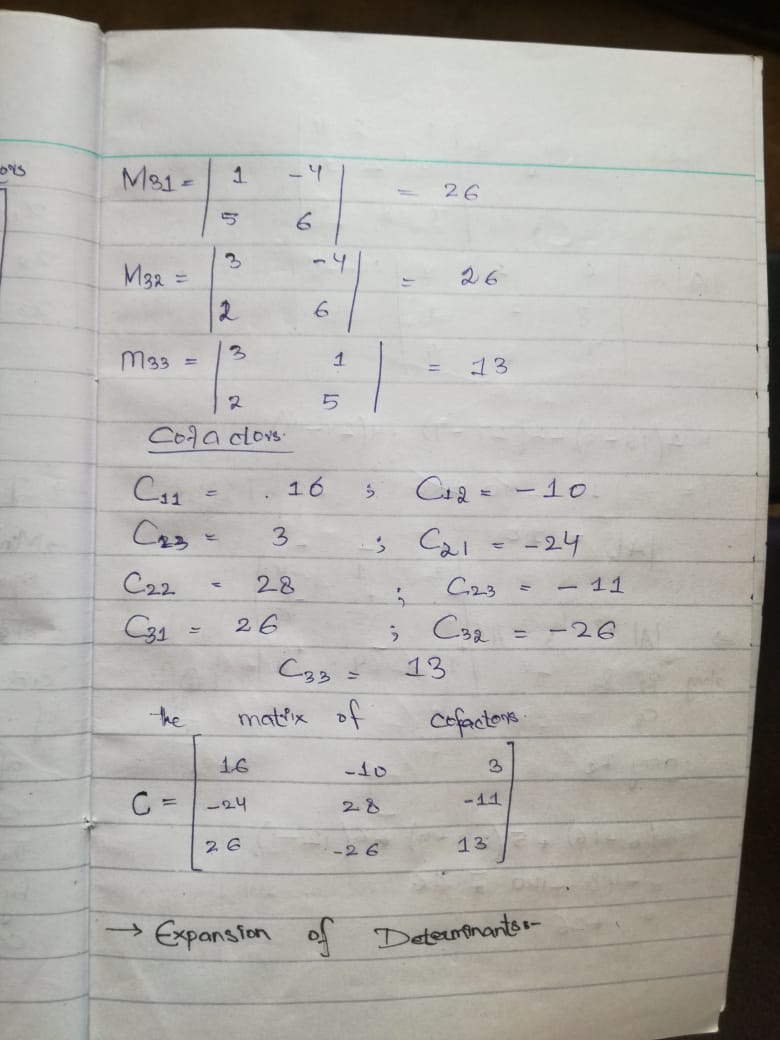 ors
M31 = | 1 -4 | = 26
| 5 6 |
M32 = | 3 -4 | = 26
| 2 6 |
M33 = | 3 1 | = 13
| 2 5 |
Cofactors.
C11 = . 16 ; C12 = -10
C23 = 3 ; C21 = -24
C22 = 28 ; C23 = -11
C31 = 26 ; C32 = -26
C33 = 13
the matrix of cofactors.
16 -10 3
C = -24 28 -11
26 -26 13
→ Expansion of Determinants:-